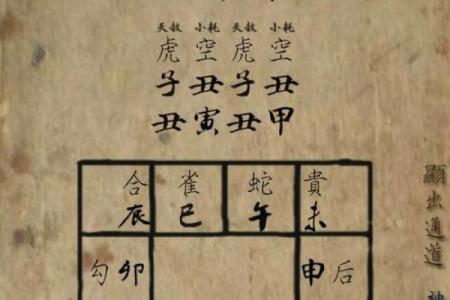 天赦 小耗 天赦 小耗
虎 空 虎 空
子 丑 子 丑
丑 寅 丑 甲
合 雀 蛇 貴
辰 巳 午 未
勾 卯 申 后
顯出通道